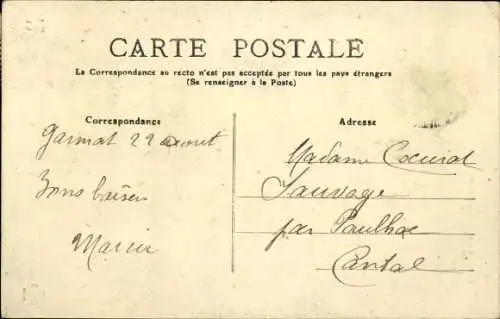 CARTE POSTALE
La Correspondance au recto n'est pas acceptée par tous les pays étrangers
(Se renseigner à la Poste)
Correspondance
Adresse
22 aout
Bons baisers
Marie
Madame
Sauvage
par Paulhac
Cantal